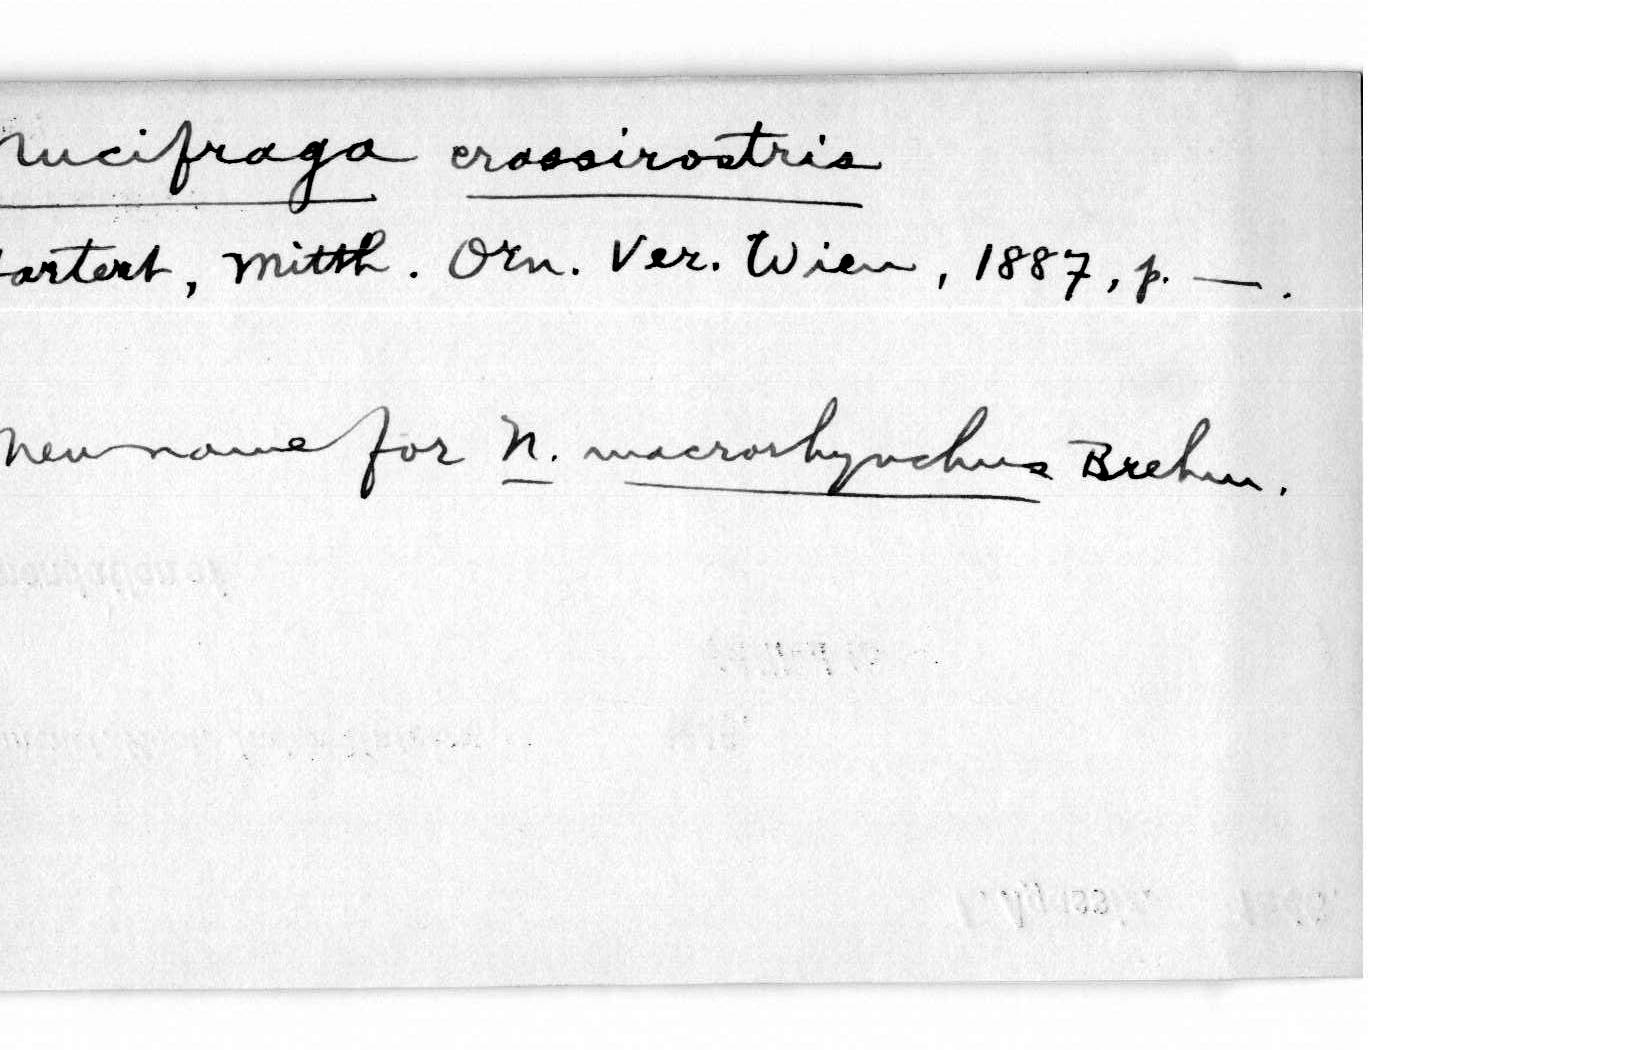 Nucifraga crassirostris
Hartert, Mitth. Orn. Ver. Wien, 1887, p. —.
New name for N. macrorhynchus Brehm.